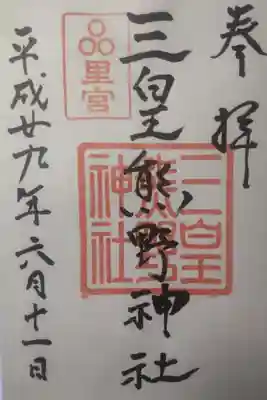 奉拝
三皇熊野神社
三皇
熊野
神社
品里宮
平成廿九年六月十一日